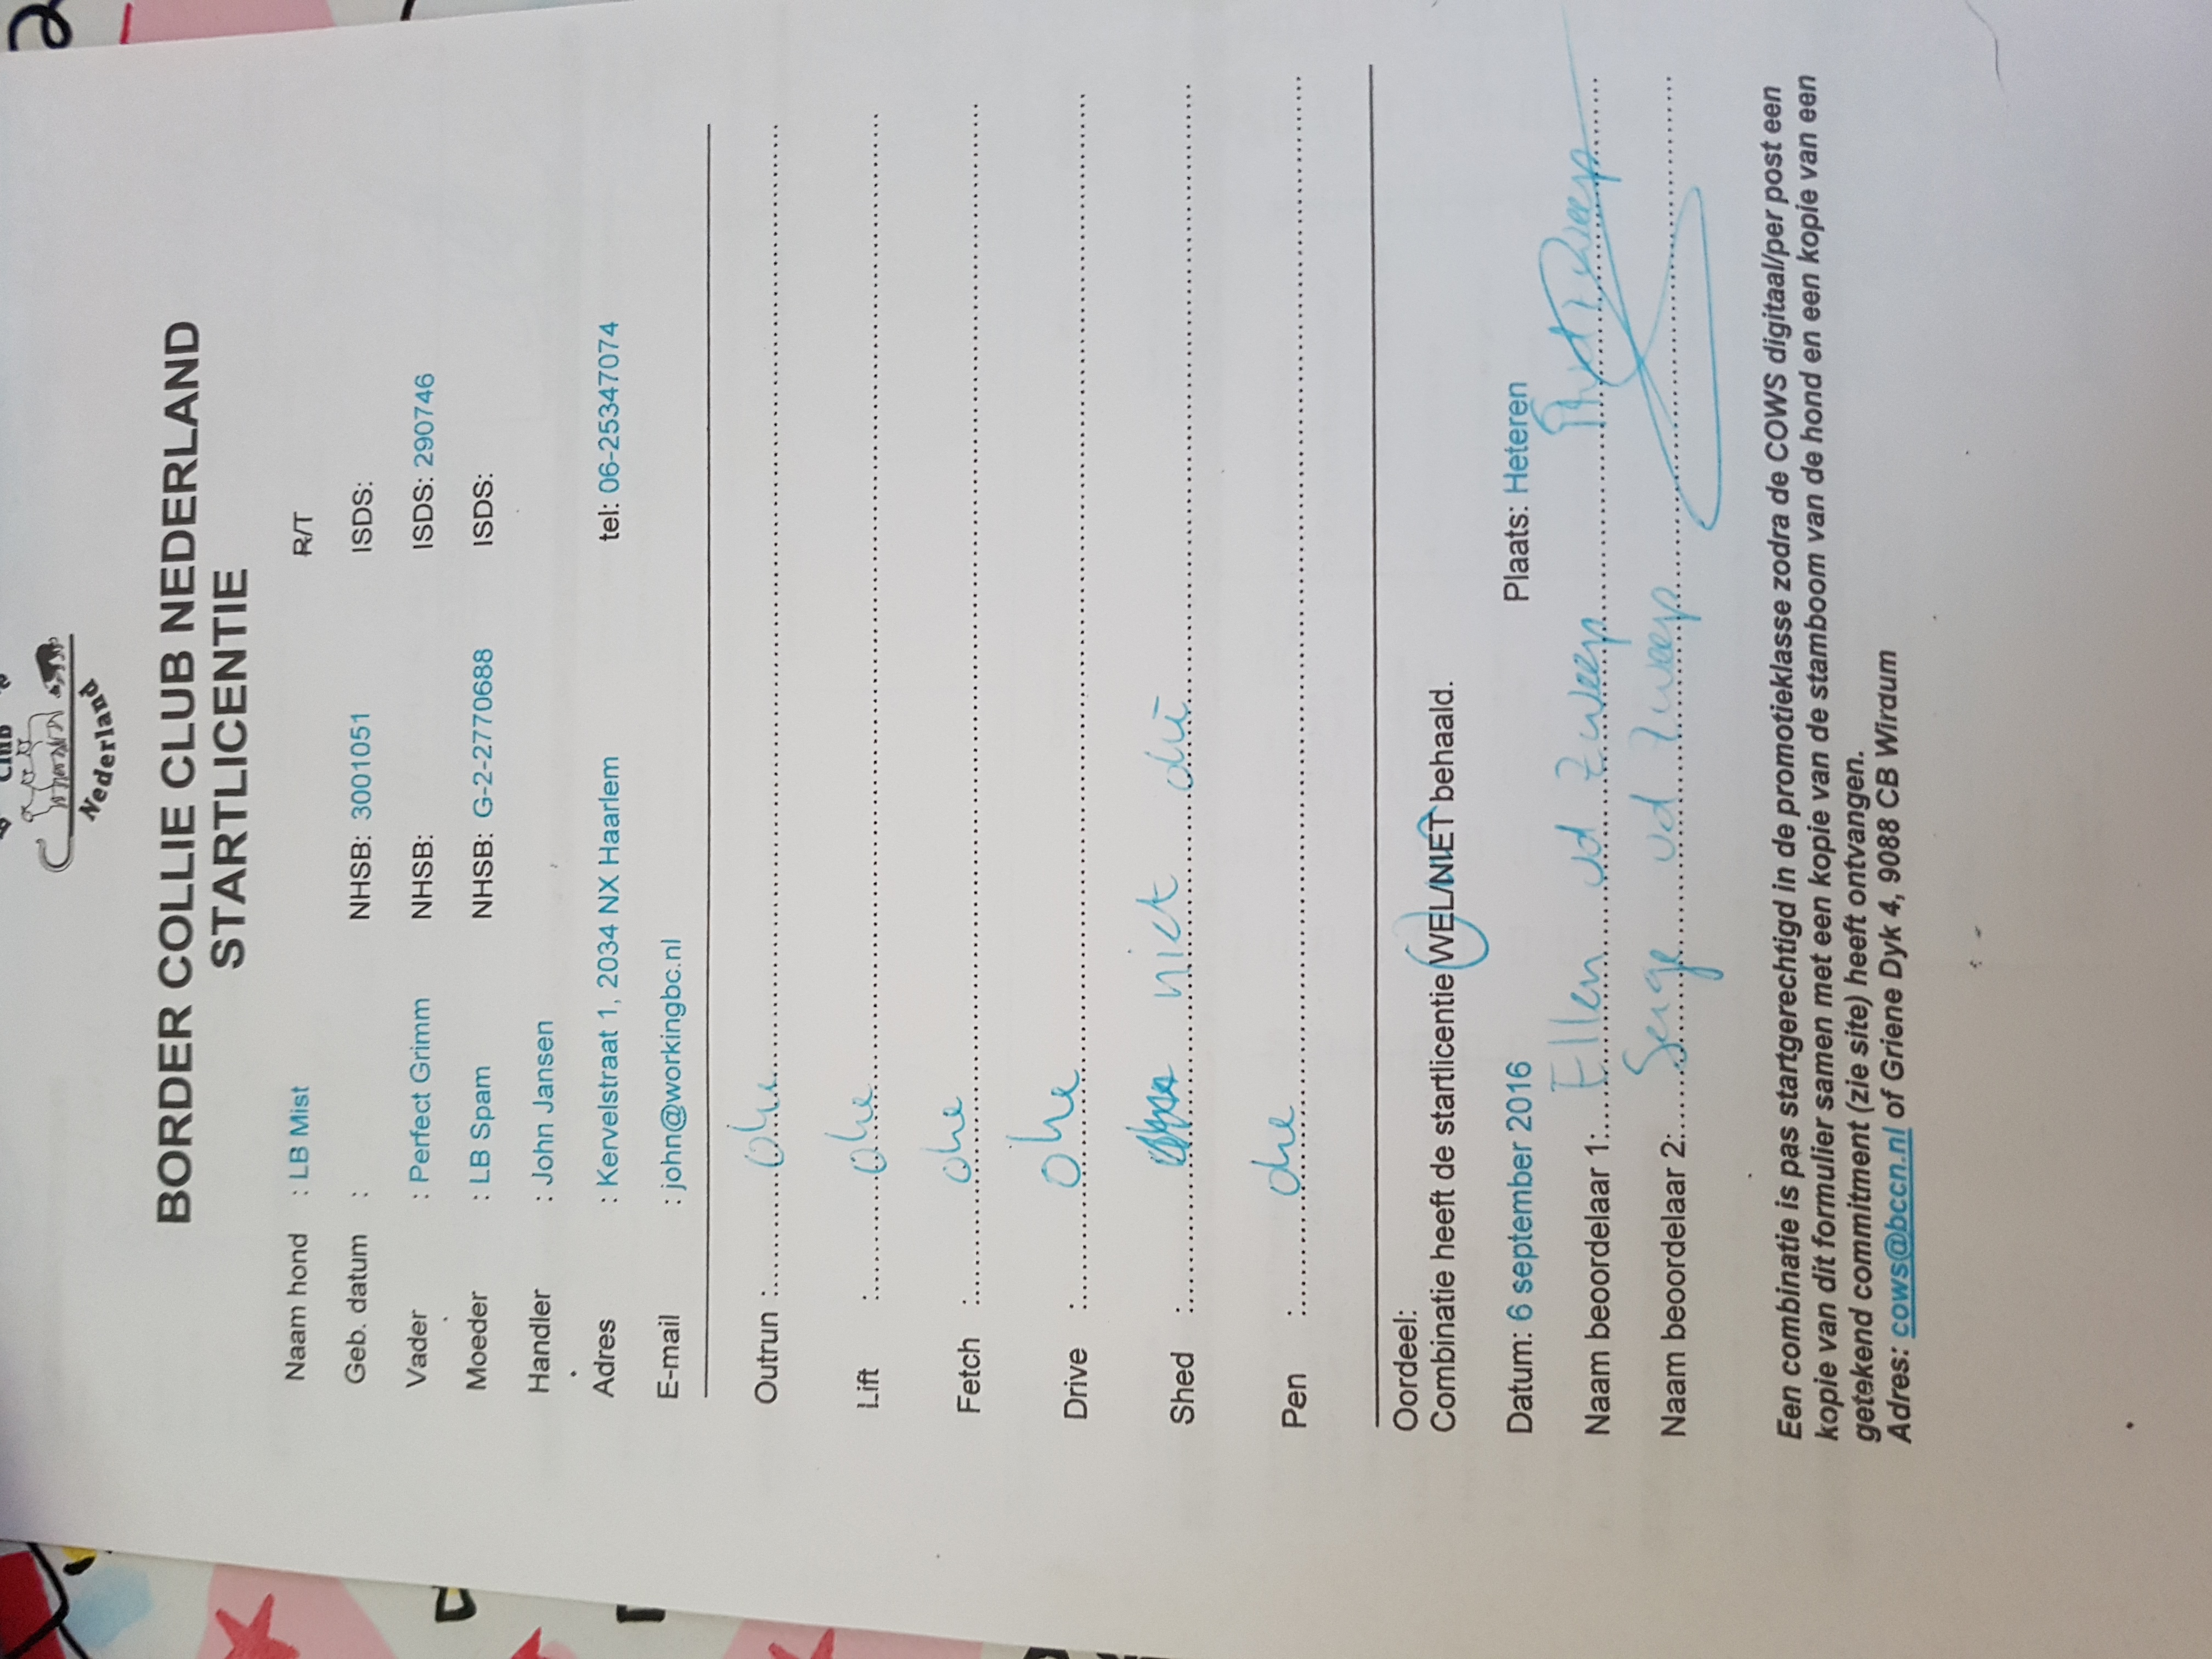 Nederland
BORDER COLLIE CLUB NEDERLAND
STARTLICENTIE
Naam hond : LB Mist R/T
Geb. datum : NHSB: 3001051 ISDS:
Vader : Perfect Grimm NHSB: ISDS: 290746
Moeder : LB Spam NHSB: G-2-2770688 ISDS:
Handler : John Jansen
Adres : Kervelstraat 1, 2034 NX Haarlem tel: 06-25347074
E-mail : john@workingbc.nl
Outrun : oke
Lift : oke
Fetch : oke
Drive : oke
Shed : niet
Pen : oke
Oordeel:
Combinatie heeft de startlicentie WEL/NIET behaald.
Datum: 6 september 2016 Plaats: Heteren
Naam beoordelaar 1: Ellen vd Zweep
Naam beoordelaar 2: Serge vd Zweep
Een combinatie is pas startgerechtigd in de promotieklasse zodra de COWS digitaal/per post een
kopie van dit formulier samen met een kopie van de stamboom van de hond en een kopie van een
getekend commitment (zie site) heeft ontvangen.
Adres: cows@bccn.nl of Griene Dyk 4, 9088 CB Wirdum